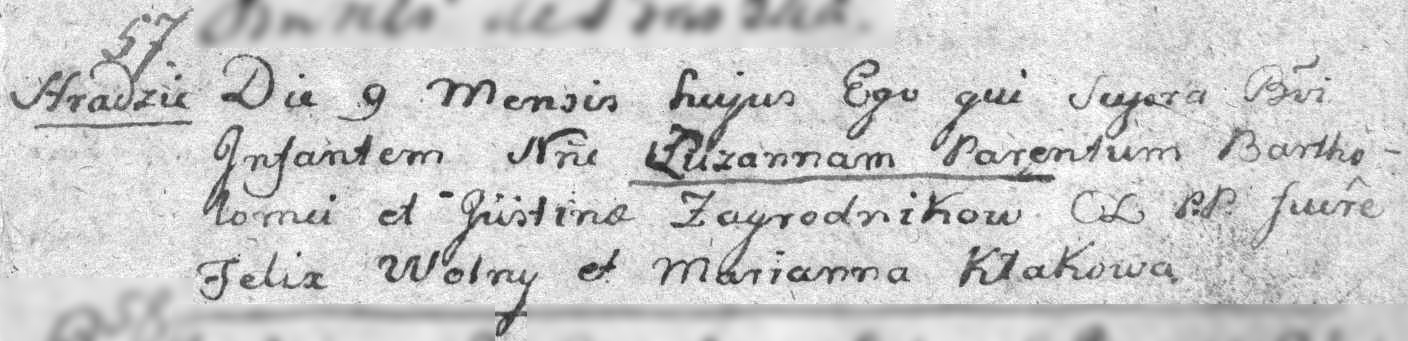 57
Hradzie Die 9 Mensis hujus Ego qui supra Bvi
Infantem Nne Zuzannam Parentum Bartho-
lomei et Justinæ Zagrodnikow CL P.P. fuere
Felix Wolny et Marianna Kłakowa
58